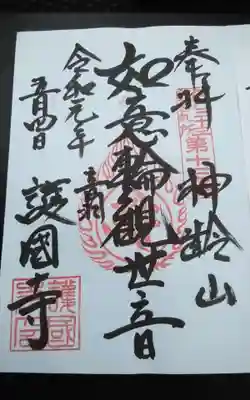 奉拝 神齢山
如意輪観世音
令和元年
五月四日 護國寺
護國寺